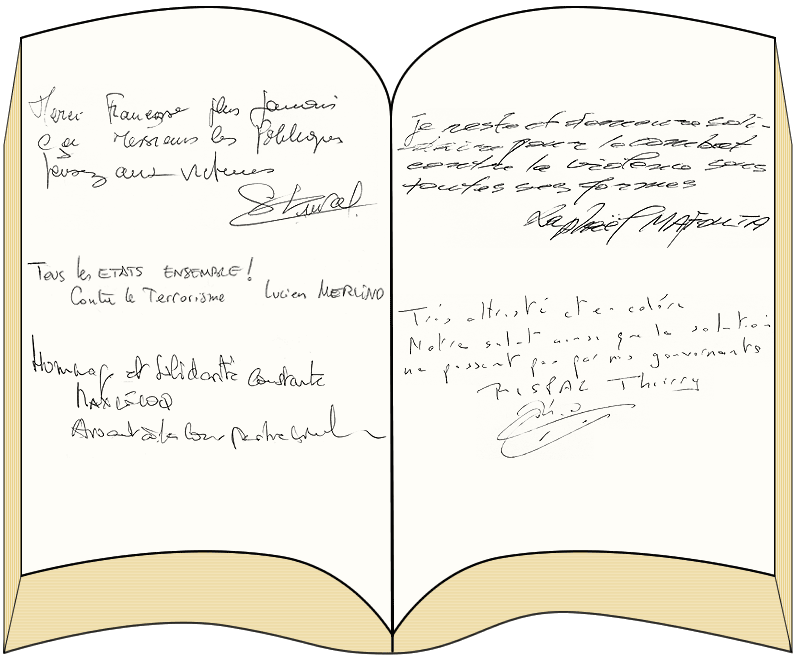 Merci Françoise plus jamais
ça Messieurs les Politiques
pensez aux victimes
Tous les ETATS ENSEMBLE !
Contre le Terrorisme Lucien MERLINO
Hommage et Solidarité Constante
MAX LECOQ
Avocat à la Cour
Je reste et demeure soli-
daire pour le combat
contre la violence sous
toutes ses formes
Raphaël MAFOUTA
Très attristé et en colère
Notre salut ainsi que la solution
ne passent pas par nos gouvernants
RISPAL Thierry